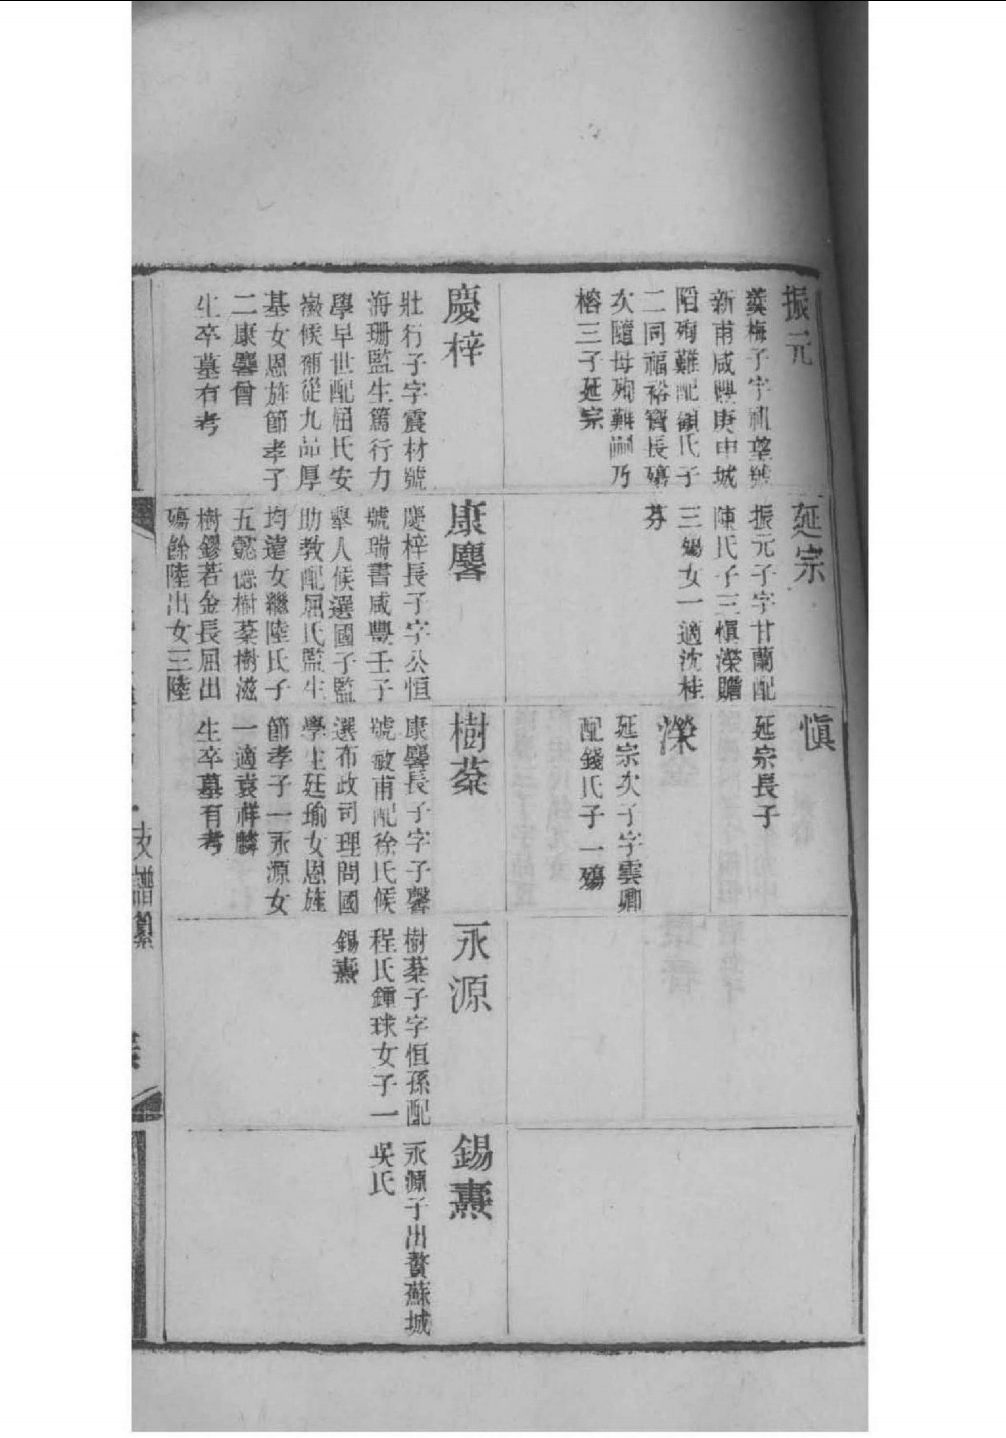 振元
羹梅子字祖望號
新甫咸豐庚申城
陷殉難配顧氏子
二同福裕寶長殤
次隨母殉難嗣乃
榕三子延宗
延宗
振元子字甘蘭配
陳氏子三愼濼贍
三殤女一適沈桂
芬
愼
延宗長子
濼
延宗次子字雲卿
配錢氏子一殤
慶梓
壯行子字震材號
海珊監生篤行力
學早世配屈氏安
候補從九品厚
基女恩旌節孝子
二康麐曾
生卒墓有考
康麐
慶梓長子字公恒
號瑞書咸豐壬子
舉人候選國子監
助教配屈氏監生
均遠女繼陸氏子
五懿德樹棻樹滋
樹鏐若金長屈出
殤餘陸出女三陸
樹棻
康麐長子字子馨
號敏甫配徐氏候
選布政司理問國
學生廷瑜女恩旌
節孝子一永源女
一適袁祥麟
生卒墓有考
永源
樹棻子字恒孫配
程氏鍾球女子一
錫燾
錫燾
永源子出贅蘇城
吳氏
支譜纂